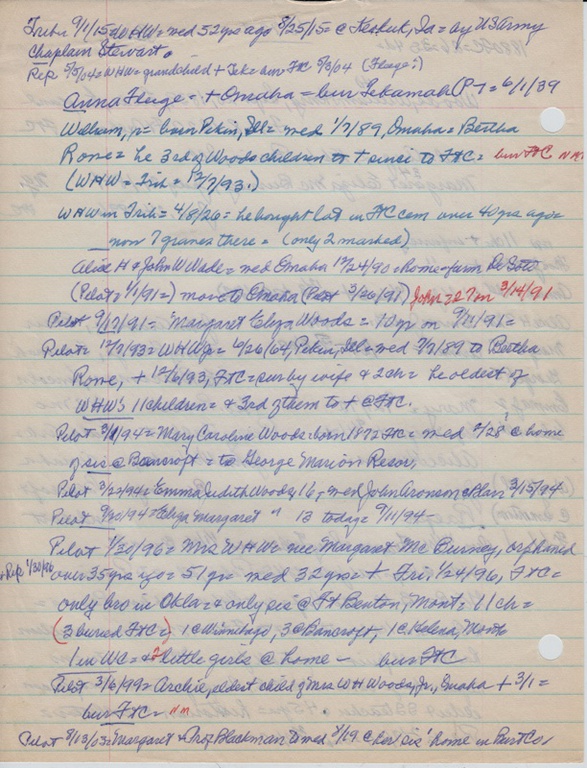 Trib: 9/1/15= WHW= med 52 yrs ago 8/25/15= @ Keokuk, Ia= by US Army
Chaplain Stewart.
Rep 5/5/04= WHW= grandchild + Tek= bur FtC 5/3/04 (Fluge?)
Anna Fluge - + Omaha= bur Tekamah (P-T= 6/1/39
William, Jr= born Pekin, Ill= med 1/7/89, Omaha= Bertha
Rome= he 3rd of Woods children to + since to FtC= bur FtC NM
(WHW= Trib= 12/7/93.)
WHW in Trib= 4/8/26= he bought lot in FtC cem over 40 yrs ago=
now 7 graves there= (only 2 marked)
Alice H + John W Wade= med Omaha 12/24/90= home-farm De Soto
(Pilot= 1/1/91=) move to Omaha (Pilot 3/26/91) John= 27 on 3/14/91
Pilot 9/17/91= Margaret Elyza Woods= 10 yr on 9/11/91=
Pilot= 12/7/93= WHW Jr= 6/26/64, Pekin, Ill= med 7/7/89 to Bertha
Rome, + 12/6/93, FtC= sur by wife & 2 ch= he oldest of
WHW's 11 children= & 3rd of them to + @ FtC.
Pilot 3/1/94= Mary Caroline Woods= born 1872 FtC= med 2/28? @ home
of sis @ Bancroft= to George Marion Resor,
Pilot 3/22/94= Emma Judith Woods, 16, med John Aronson @ Blair 3/15/94
Pilot 9/20/94= Elyza Margaret " 13 today= 9/11/94=
Pilot 1/30/96= Mrs WHW= nee Margaret McBurney, orphaned
+Rep 1/30/96 over 35 yrs ago= 51 yr= med 32 yrs= + Fri, 1/24/96, FtC=
only bro in Okla= & only sis @ Ft Benton, Mont= 11 ch=
(3 buried FtC=) 1 @ Winnebago, 3 @ Bancroft, 1 @ Helena, Mont
1 in WC= & 2 little girls @ home - bur FtC
Pilot 3/6/99= Archie, oldest child of Mrs WH Woods, Jr., Omaha + 3/1=
bur FtC= NM
Pilot 8/13/03= Margaret & Prof Blackman to med 8/19 @ her sis' home in Burt Co,